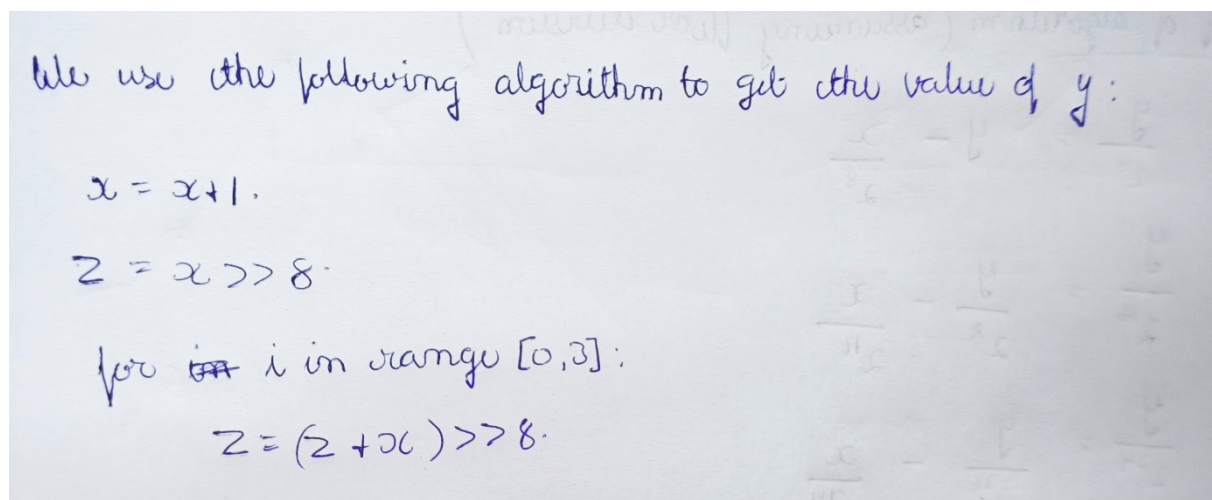 We use the following algorithm to get the value of y:
x = x+1.
z = x >> 8.
for i in range [0,3]:
z = (z + x) >> 8.